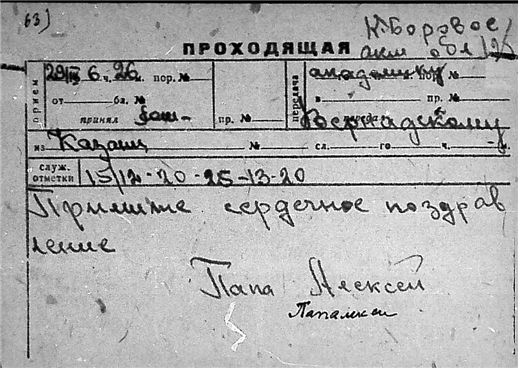 63)
К. Боровое
ПРОХОДЯЩАЯ
акм обл
прием 29/III 6 ч. 26 м. пор. №
передача академику №
от бл. № в пр. №
принял пр. № Вернадскому
из Казани № сл. го ч. м.
служ. отметки 15/12-20-25-13-20
Примите сердечное поздрав
ление
Папа Алексей
Папалекси